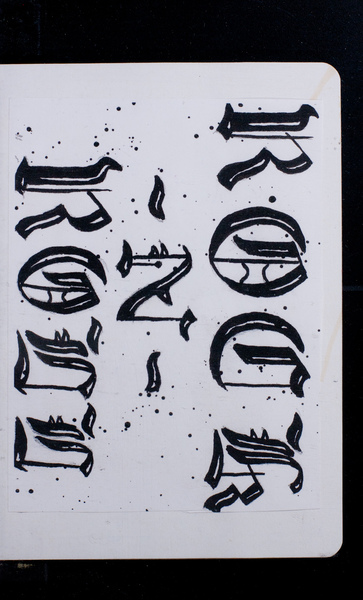 ROCK
-N-
ROLL